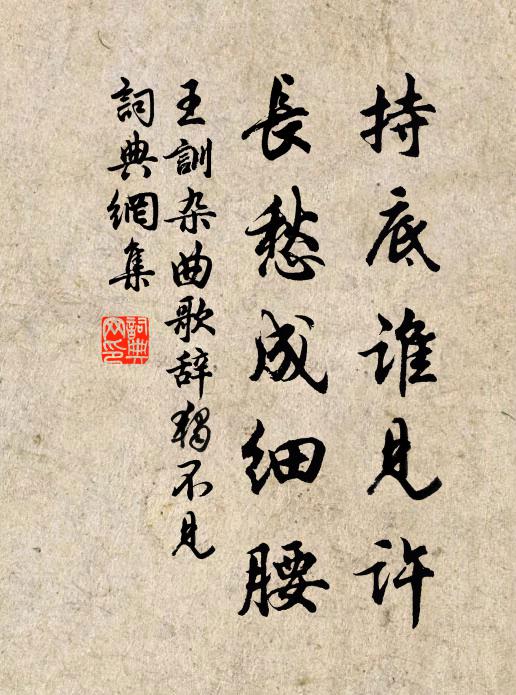 持底誰見許
長愁成細腰
王訓杂曲歌辞獨不見
詞典網集
詞典网印